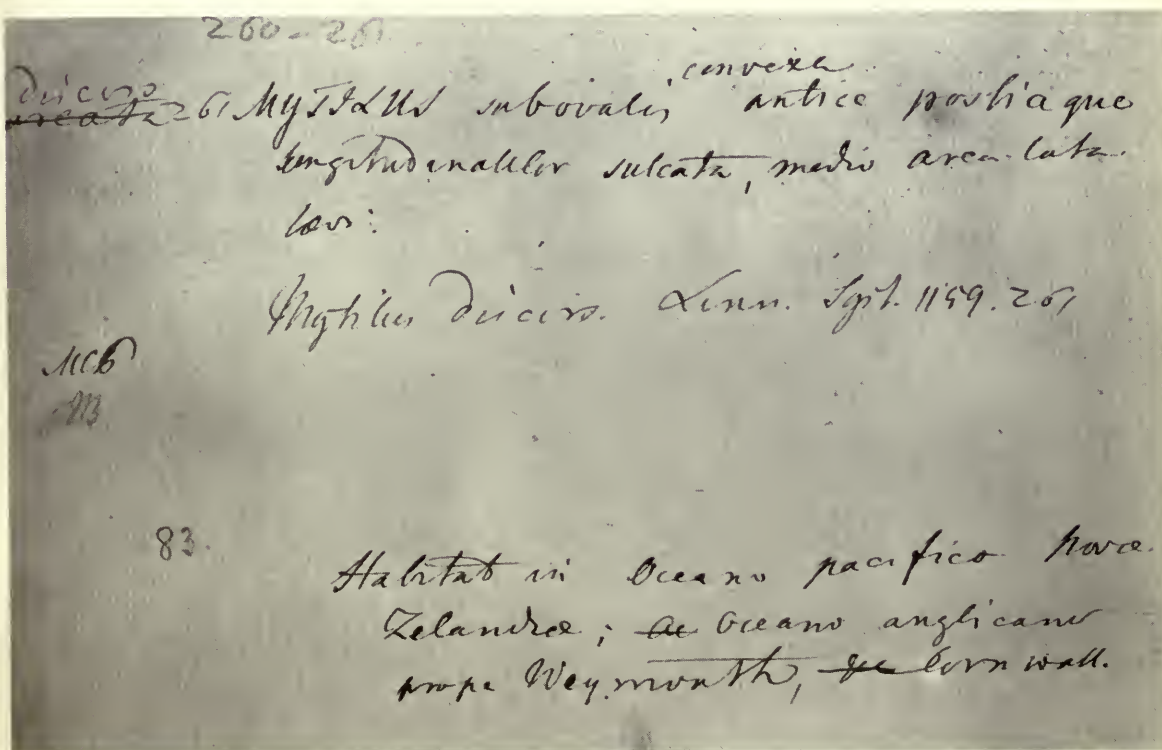 260-261
convexa
discors
areata 261 MYTILUS subovalis antice posticaque
longitudinaliter sulcata, medio area lata
lævi:
Mytilus discors. Linn. Syst. 1159. 261
MCB
M
83.
Habitat in Oceano pacifico Novæ
Zelandiæ; Oceano anglicano
prope Weymouth, Cornwall.